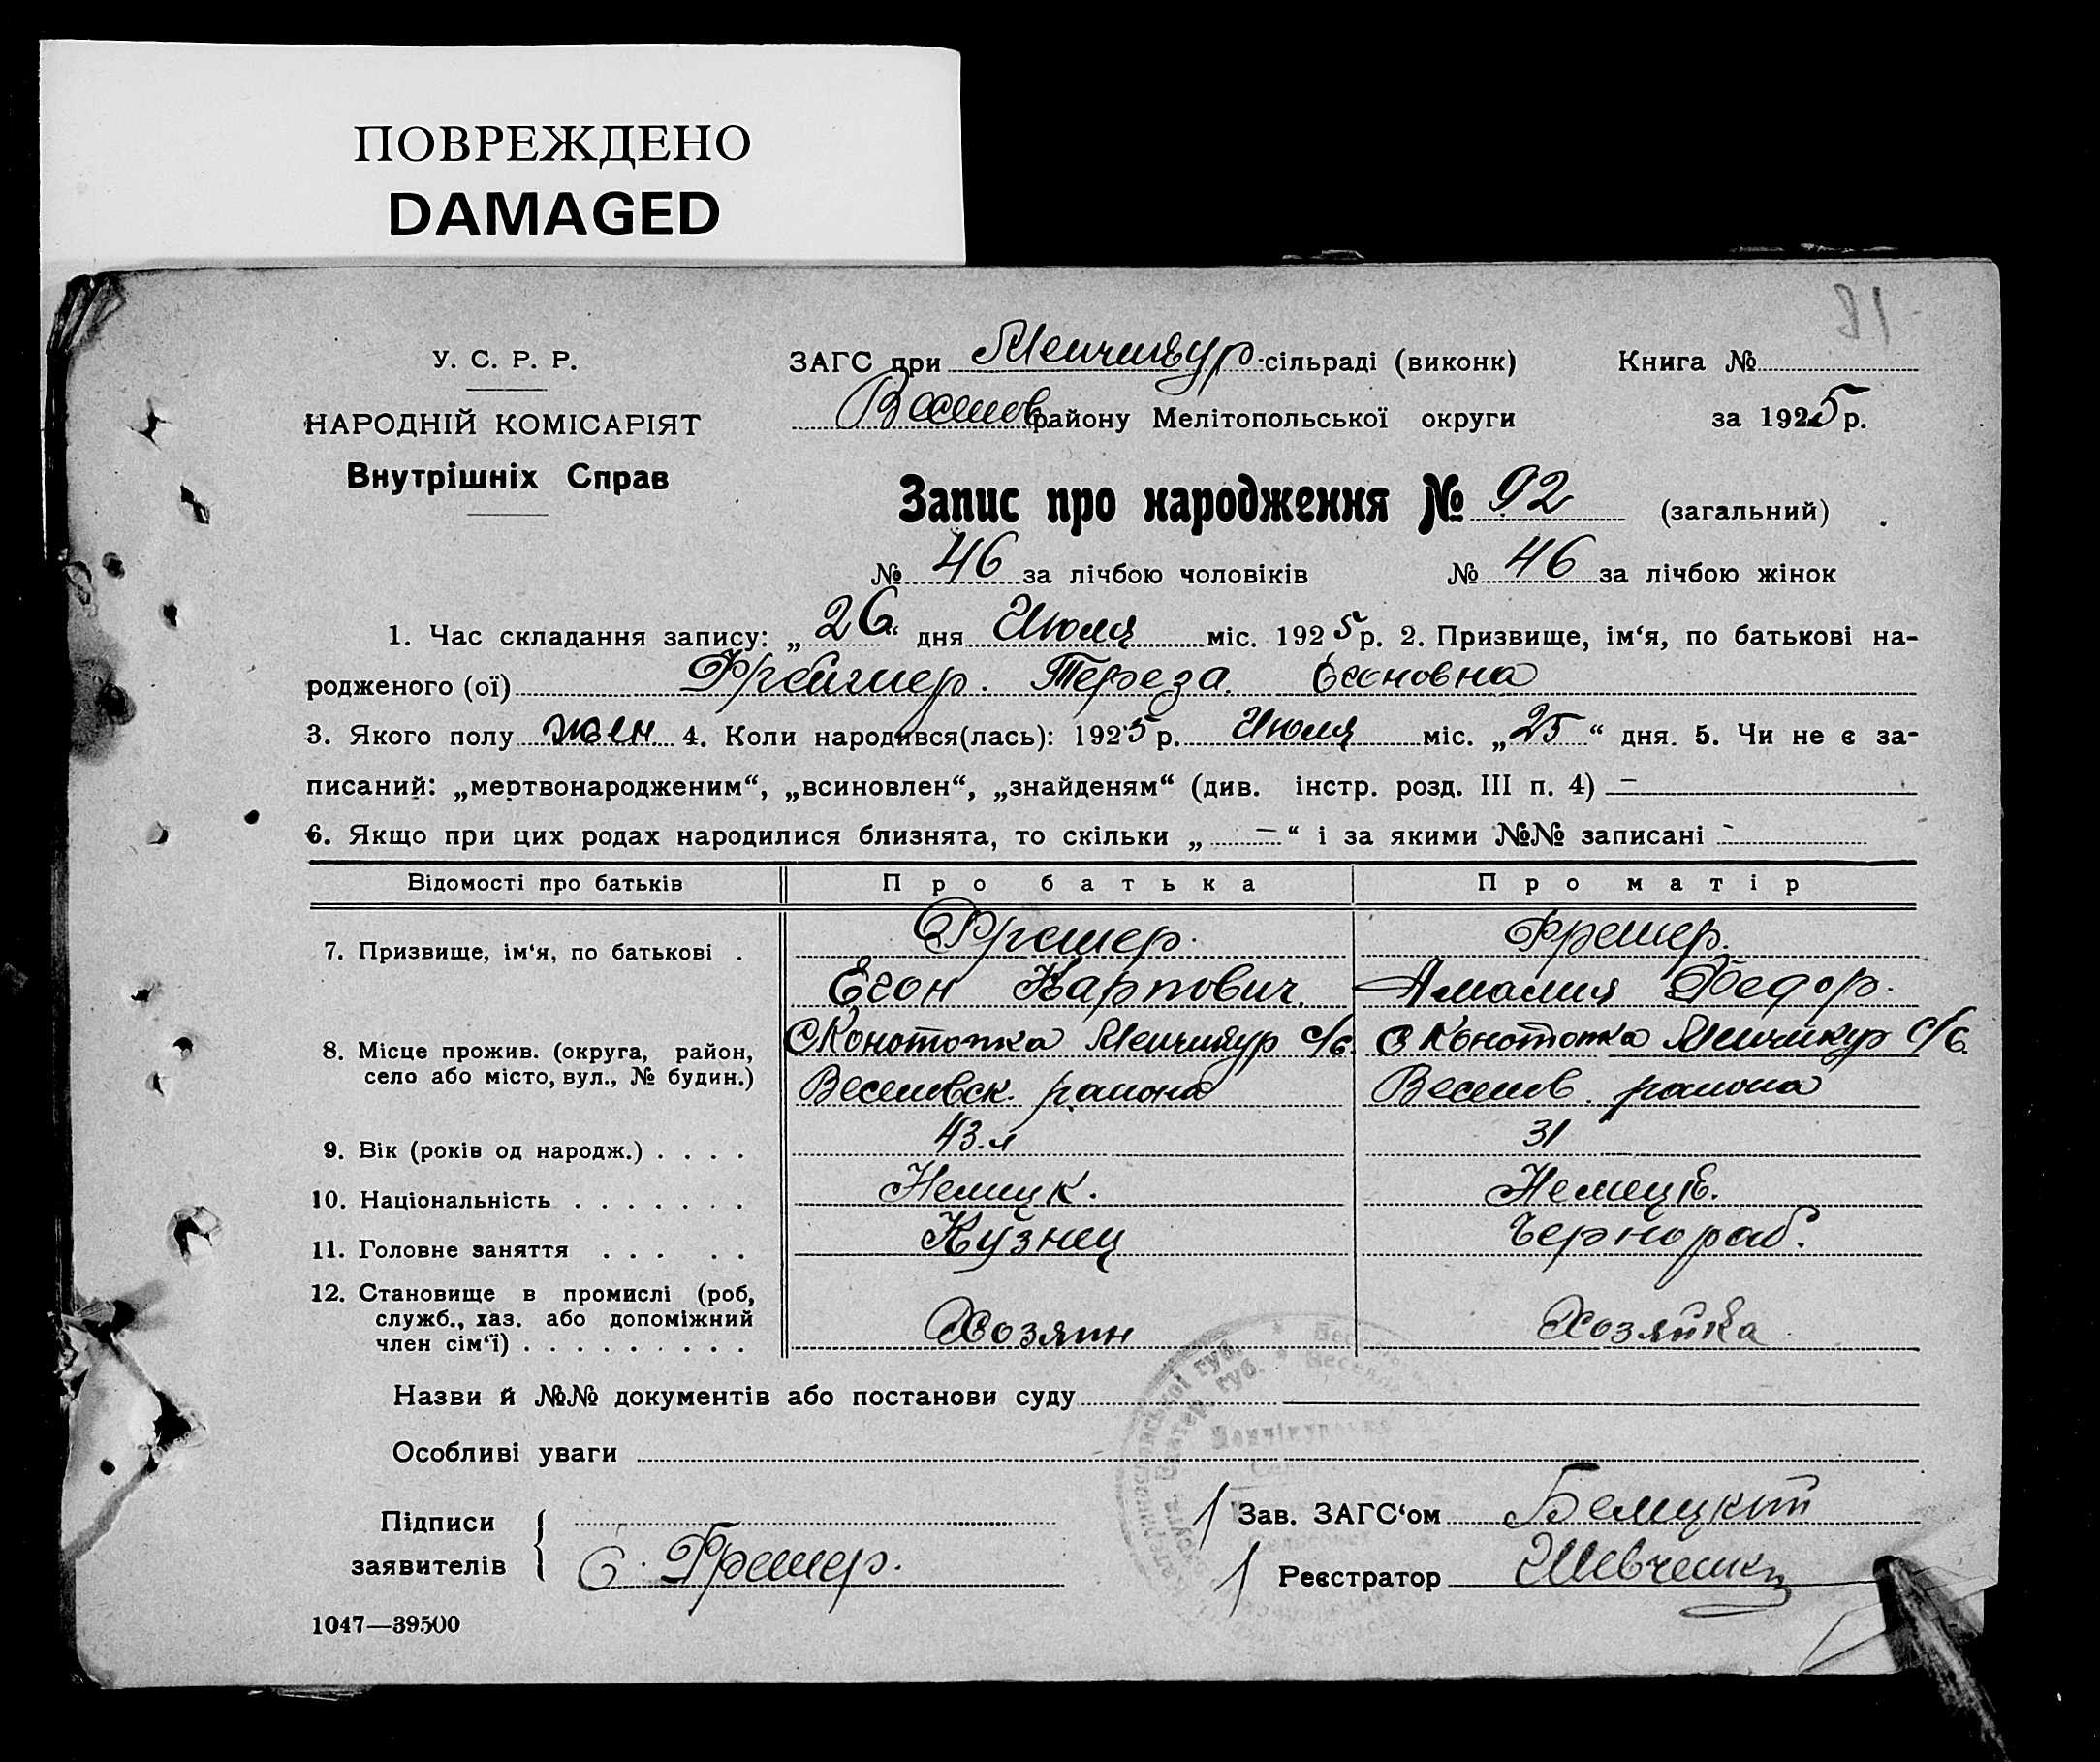 ПОВРЕЖДЕНО
DAMAGED
81
У. С. Р. Р.
НАРОДНІЙ КОМІСАРІЯТ
Внутрішніх Справ
ЗАГС при Менчикур. сільраді (виконк) Книга №
Веселов району Мелітопольської округи за 1925 р.
Запис про народження № 92 (загальний)
№ 46 за лічбою чоловіків № 46 за лічбою жінок
1. Час складання запису: „26“ дня Июля міс. 1925 р. 2. Призвище, ім‘я, по батькові на-
родженого (ої) Тереза
3. Якого полу жен 4. Коли народився(лась): 1925 р. Июля міс. „25“ дня. 5. Чи не є за-
писаний: „мертвонародженим“, „всиновлен“, „знайденям“ (див. інстр. розд. III п. 4) —
6. Якщо при цих родах народилися близнята, то скільки „ — “ і за якими №№ записані -
Відомості про батьків Про батька Про матір
7. Призвище, ім‘я, по батькові . Фрешер. Фрешер.
Егон Карпович. Амалия Федор.
8. Місце прожив. (округа, район, село або місто, вул., № будин.) С Конотопка Менчикур с/с. С Конотопка Менчикур с/с.
Веселовск. района Веселов. района
9. Вік (років од народж.) . . . . 43.л 31
10. Національність . . . . . . . Немецк.
11. Головне заняття . . . . . Кузнец Чернораб.
12. Становище в промислі (роб, служб., хаз. або допоміжний член сім‘ї) . . . . . . . . . Хозяин Хозяйка
Назви й №№ документів або постанови суду
Особливі уваги
Підписи заявителів { Е. Фрешер.
Зав. ЗАГС‘ом Белицкий
Реєстратор Шевченко
1047—39500